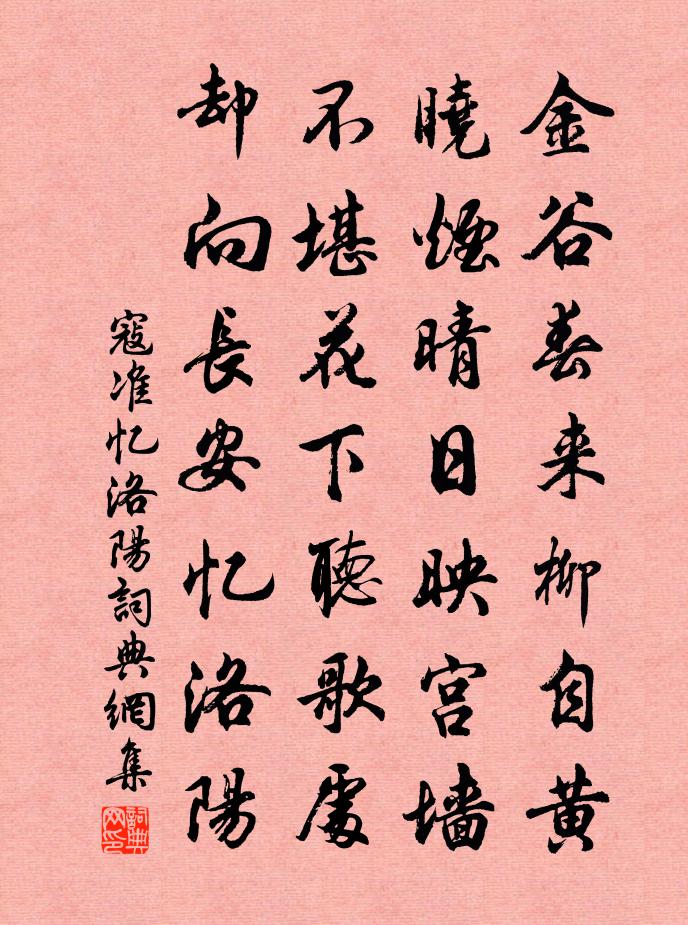 金谷春来柳自黄
曉煙晴日映宫墙
不堪花下聽歌處
却向長安忆洛陽
寇准忆洛陽詞典網集
詞典网印